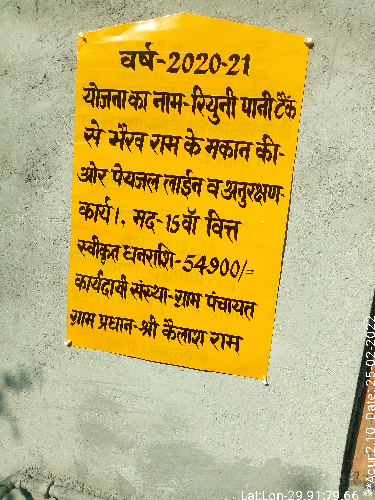 वर्ष-2020-21
योजना का नाम-रियुनी पानी टैंक
से भैरव राम के मकान की-
ओर पेयजल लाईन व अनुरक्षण-
कार्य।, मद-15वॉ वित्त
स्वीकृत धनराशि-54900/=
कार्यदायी संस्था-ग्राम पंचायत
ग्राम प्रधान-श्री कैलाश राम
Lat:Lon-29.91:79.66
**Acur:2.10 Date: 25-02-2022